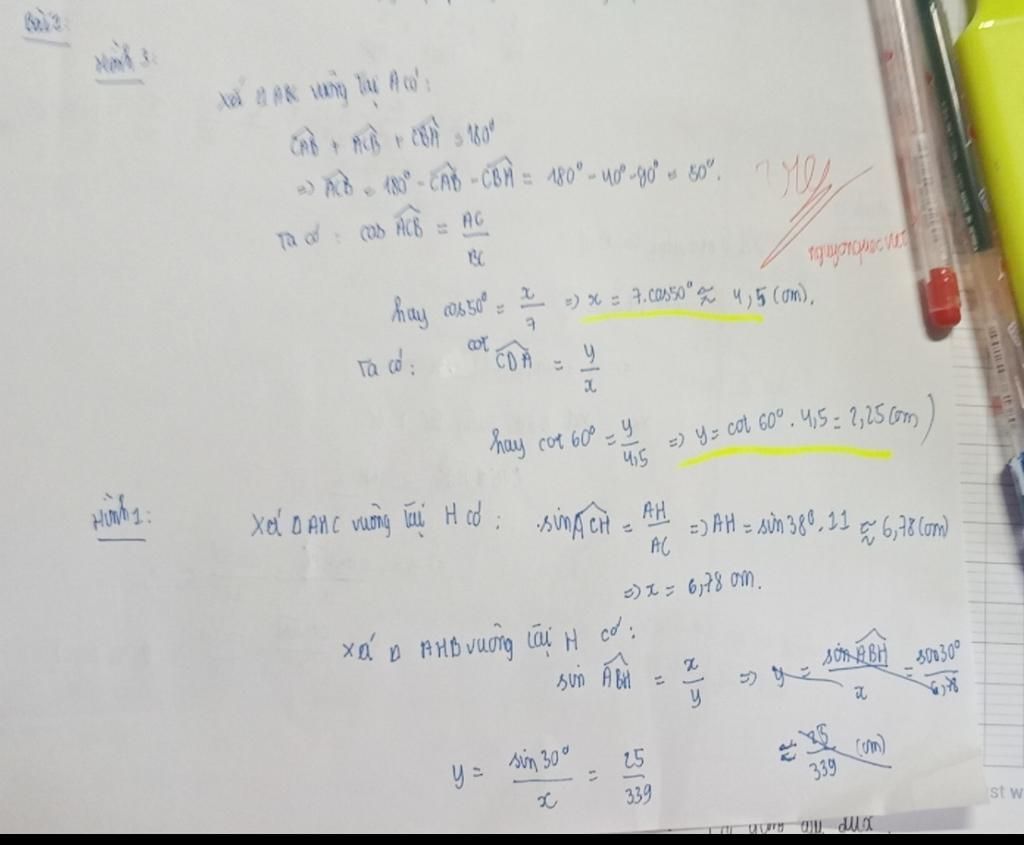 Bài 2:
Hình 3:
Xét △ABC vuông tại A có:
CAB + ACB + CBA = 180°
=> ACB = 180° - CAB - CBA = 180° - 40° - 90° = 50°.
Ta có: cos ACB = AC/BC
hay cos50° = x/7 => x = 7.cos50° ≈ 4,5 (cm).
Ta có: cot CDA = y/x
hay cot 60° = y/4,5 => y = cot 60° . 4,5 = 2,25 (cm)
nguyenquocviet
Hình 1: Xét △AHC vuông tại H có: sin ACH = AH/AC => AH = sin 38° . 11 ≈ 6,78 (cm)
=> x = 6,78 cm.
Xét △ AHB vuông tại H có:
sin ABH = x/y => y = sin ABH/x = sin30°/6,78
≈ 25/339 (cm)
y = sin 30°/x = 25/339
st w